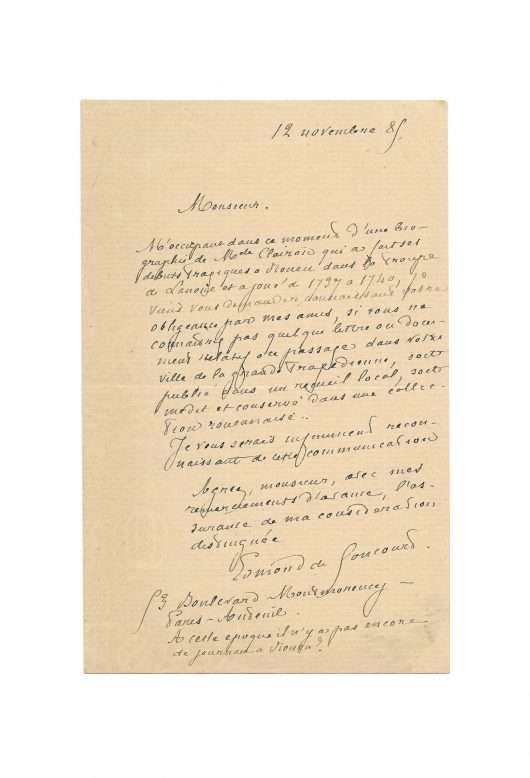 12 novembre 85
Monsieur.
M'occupant dans ce moment d'une bio-
graphie de Melle Clairon qui a fait ses
débuts tragiques a Rouen dans la troupe
de Lanoue et a joué de 1737 a 1740, je
viens vous demander, connaissant votre
obligeance par mes amis, si vous ne
connaitriez pas quelque lettre ou docu-
ment relatif au passage dans votre
ville de la grande tragedienne, soit
publié dans un recueil local, soit
inedit et conservé dans une collec-
tion rouennaise.
Je vous serais infiniment recon-
naissant de cette communication
Agreez, monsieur, avec mes
remerciements d'avance, l'as-
surance de ma consideration
distinguée
Edmond de Goncourt.
53 Boulevard Montmorency —
Paris-Auteuil.
A cette epoque il n'y a pas encore
de journaux a Rouen?